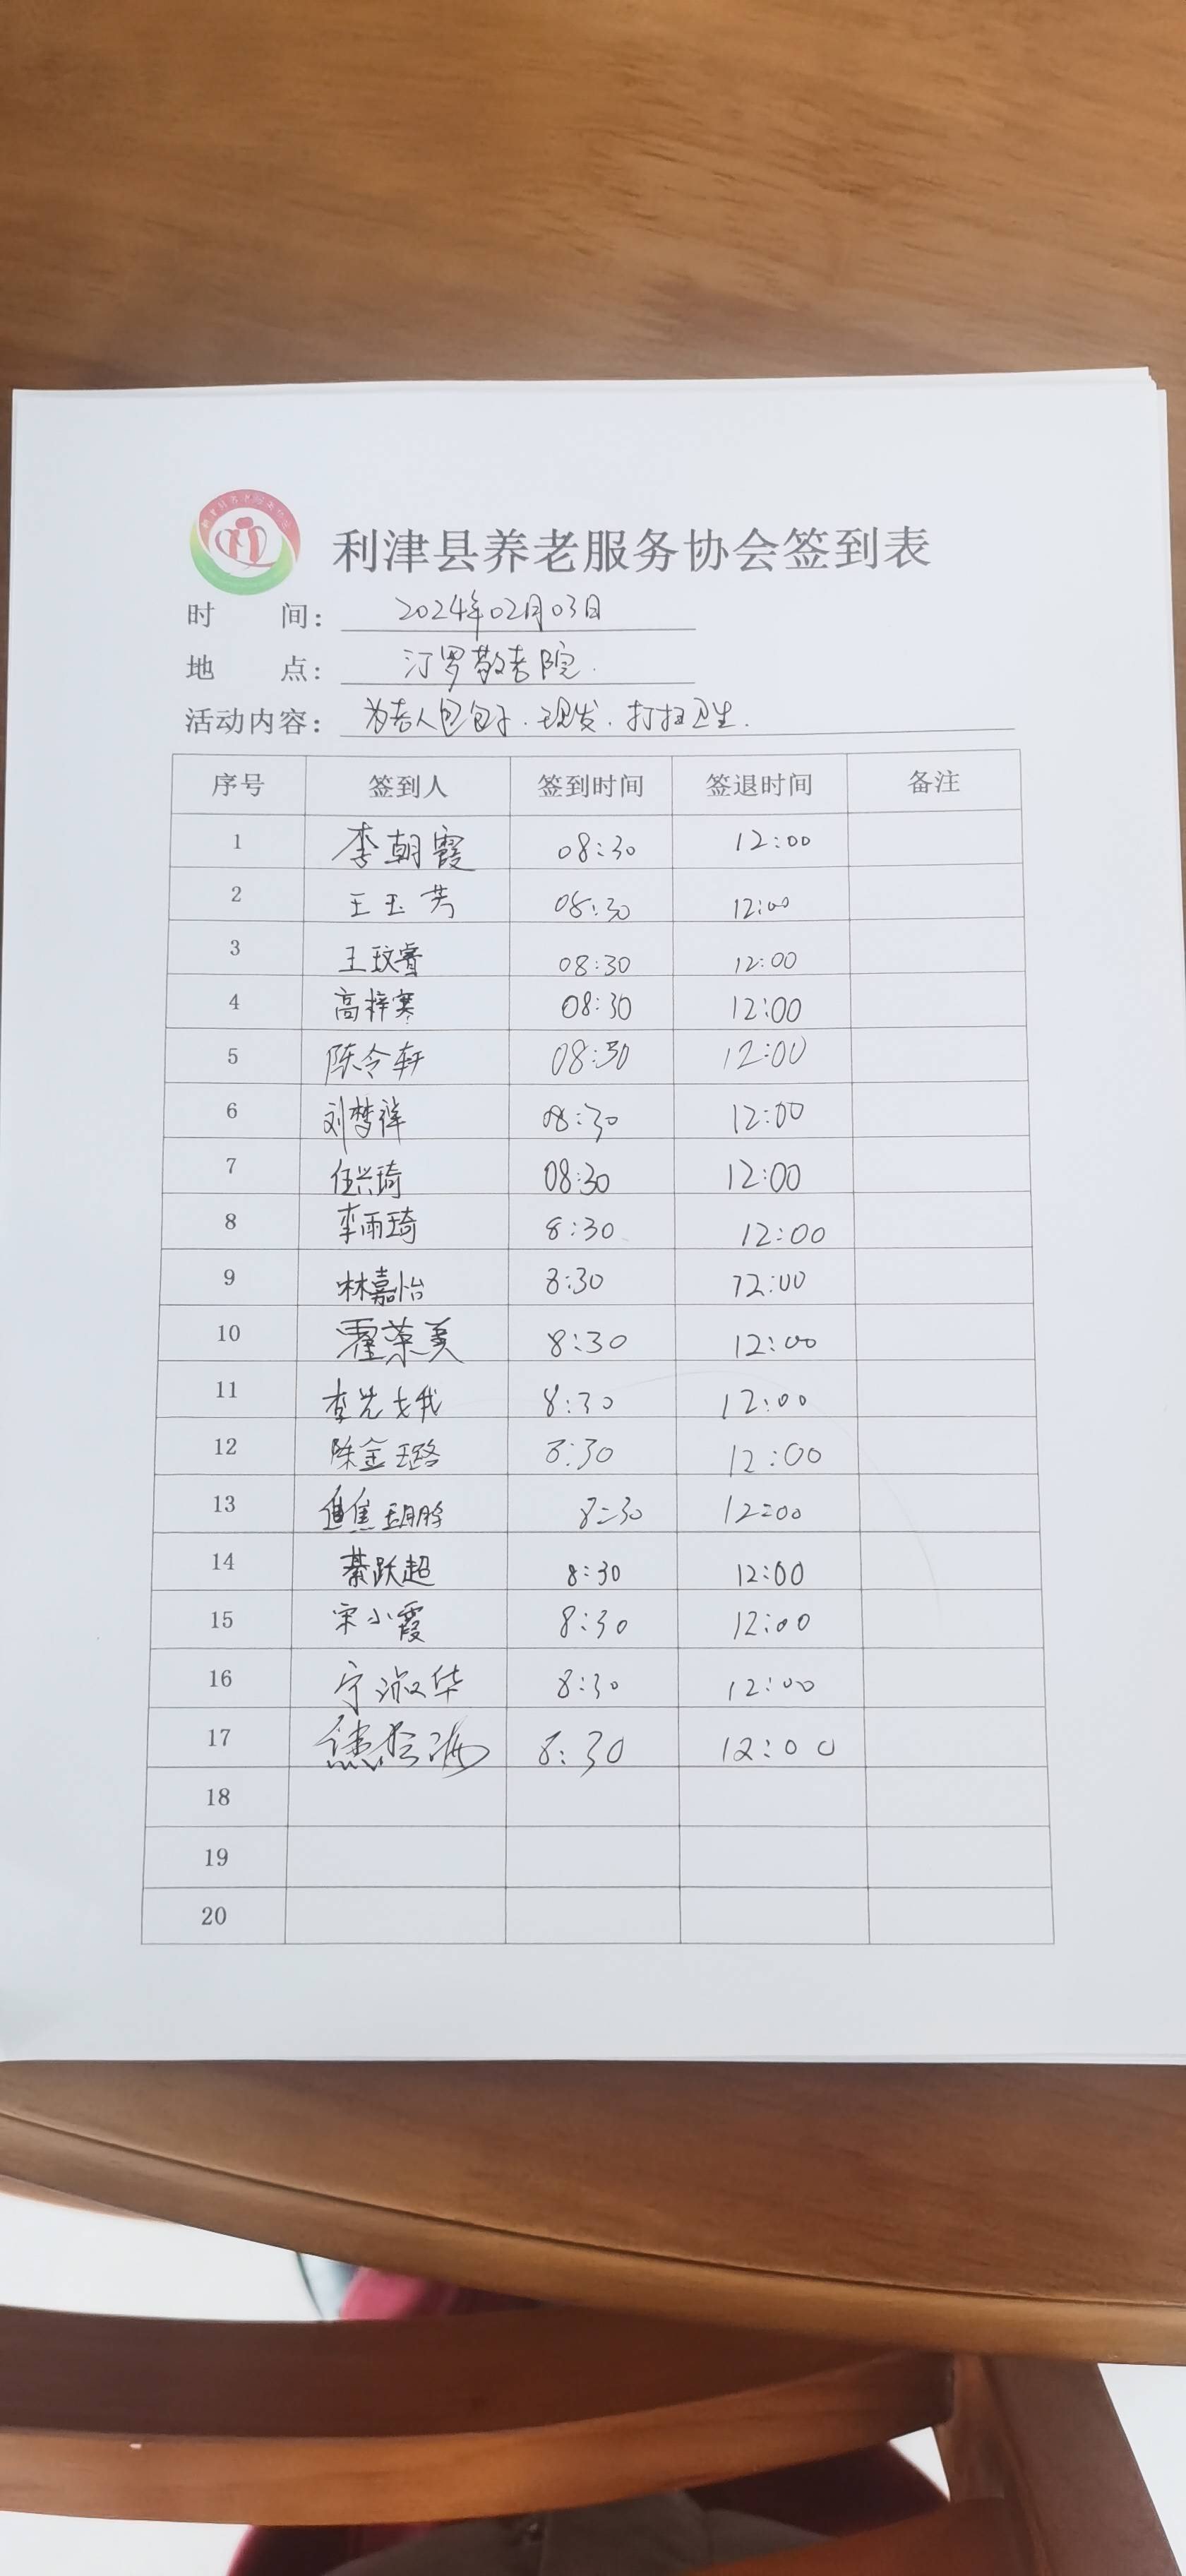 利津县养老服务协会签到表
时 间： 2024年02月03日
地 点： 汀罗敬老院.
活动内容： 为老人包包子.理发.打扫卫生.
序号 签到人 签到时间 签退时间 备注
1 李朝霞 08:30 12:00
2 王玉芳 08:30 12:00
3 王玟睿 08:30 12:00
4 高梓寒 08:30 12:00
5 陈令轩 08:30 12:00
6 刘梦祥 08:30 12:00
7 任兴琦 08:30 12:00
8 李雨琦 8:30 12:00
9 林嘉怡 8:30 12:00
10 霍荣美 8:30 12:00
11 李先娥 8:30 12:00
12 陈金璐 8:30 12:00
13 8:30 12:00
14 綦跃超 8:30 12:00
15 宋小霞 8:30 12:00
16 宁淑华 8:30 12:00
17 8:30 12:00
18
19
20